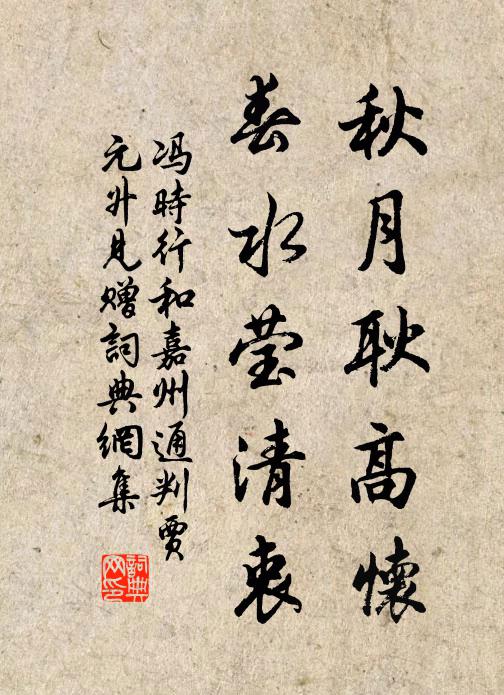 秋月耿高懷
春水莹清衷
冯時行和嘉州通判賈
元外見赠詞典網集
詞典网印